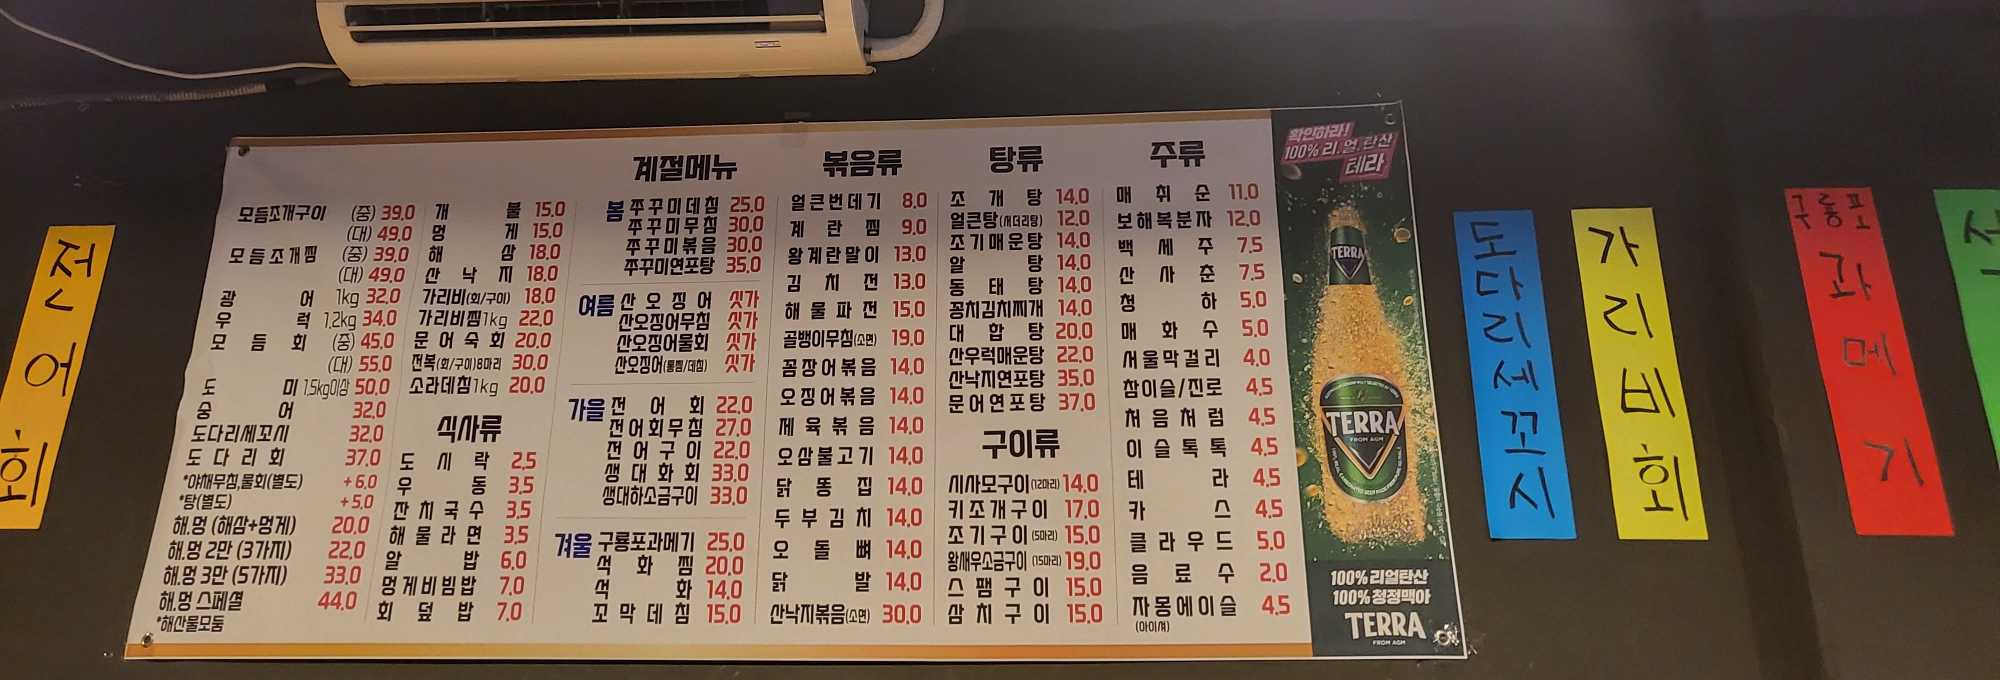 전어회
모듬조개구이 (중) 39,0
(대) 49,0
모듬조개찜 (중) 39,0
(대) 49,0
광어 1kg 32,0
우럭 1,2kg 34,0
모듬회 (중) 45,0
(대) 55,0
도미 1,5kg이상 50,0
숭어 32,0
도다리세꼬시 32,0
도다리회 37,0
*야채무침,물회(별도) +6,0
*탕(별도) +5,0
해.멍 (해삼+멍게) 20,0
해.멍 2만 (3가지) 22,0
해.멍 3만 (5가지) 33,0
해.멍 스페셜 44,0
*해산물모듬
개불 15,0
멍게 15,0
해삼 18,0
산낙지 18,0
가리비(회/구이) 18,0
가리비찜1kg 22,0
문어숙회 20,0
전복(회/구이)8마리 30,0
소라데침1kg 20,0
식사류
도시락 2,5
우동 3,5
잔치국수 3,5
해물라면 3,5
알밥 6,0
멍게비빔밥 7,0
회덮밥 7,0
계절메뉴
봄 쭈꾸미데침 25,0
쭈꾸미무침 30,0
쭈꾸미볶음 30,0
쭈꾸미연포탕 35,0
여름 산오징어 싯가
산오징어무침 싯가
산오징어물회 싯가
산오징어(통찜/데침) 싯가
가을 전어회 22,0
전어회무침 27,0
전어구이 22,0
생대화회 33,0
생대하소금구이 33,0
겨울 구룡포과메기 25,0
석화찜 20,0
석화 14,0
꼬막데침 15,0
볶음류
얼큰번데기 8,0
계란찜 9,0
왕계란말이 13,0
김치전 13,0
해물파전 15,0
골뱅이무침(소면) 19,0
꼼장어볶음 14,0
오징어볶음 14,0
제육볶음 14,0
오삼불고기 14,0
닭똥집 14,0
두부김치 14,0
오돌뼈 14,0
닭발 14,0
산낙지볶음(소면) 30,0
탕류
조개탕 14,0
얼큰탕(서더리탕) 12,0
조기매운탕 14,0
알탕 14,0
동태탕 14,0
꽁치김치찌개 14,0
대합탕 20,0
산우럭매운탕 22,0
산낙지연포탕 35,0
문어연포탕 37,0
구이류
시사모구이(12마리) 14,0
키조개구이 17,0
조기구이(5마리) 15,0
왕새우소금구이(15마리) 19,0
스팸구이 15,0
삼치구이 15,0
주류
매취순 11,0
보해복분자 12,0
백세주 7,5
산사춘 7,5
청하 5,0
매화수 5,0
서울막걸리 4,0
참이슬/진로 4,5
처음처럼 4,5
이슬톡톡 4,5
테라 4,5
카스 4,5
클라우드 5,0
음료수 2,0
자몽에이슬 4,5
(아이셔)
확인하라!
100% 리.얼.탄산
테라
TERRA
TERRA
FROM AGM
100% 리얼탄산
100% 청정맥아
TERRA
FROM AGM
도다리세꼬시
가리비회
구룡포
과메기